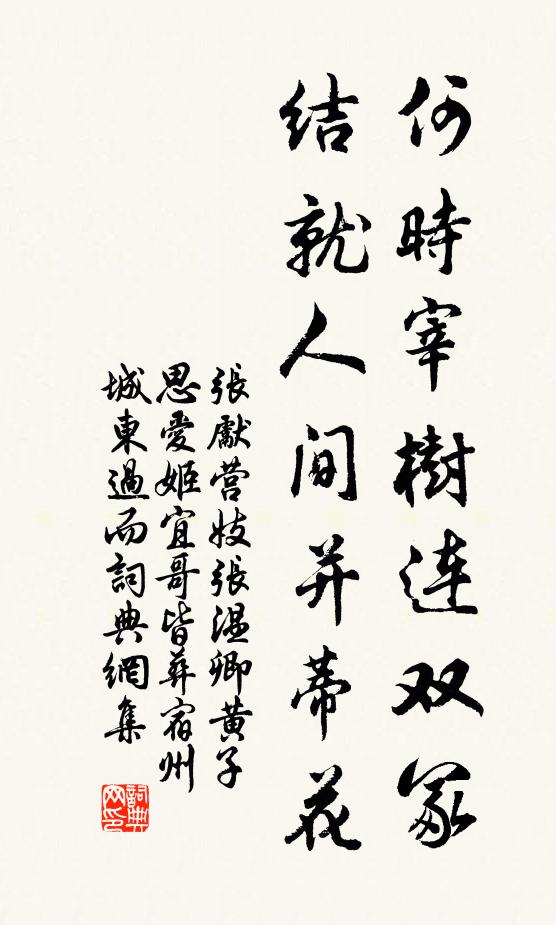 何時宰樹連双冢
結就人間并蒂花
張獻營妓張温卿黄子
思愛姬宜哥皆葬宿州
城東過而詞典網集
詞典网印